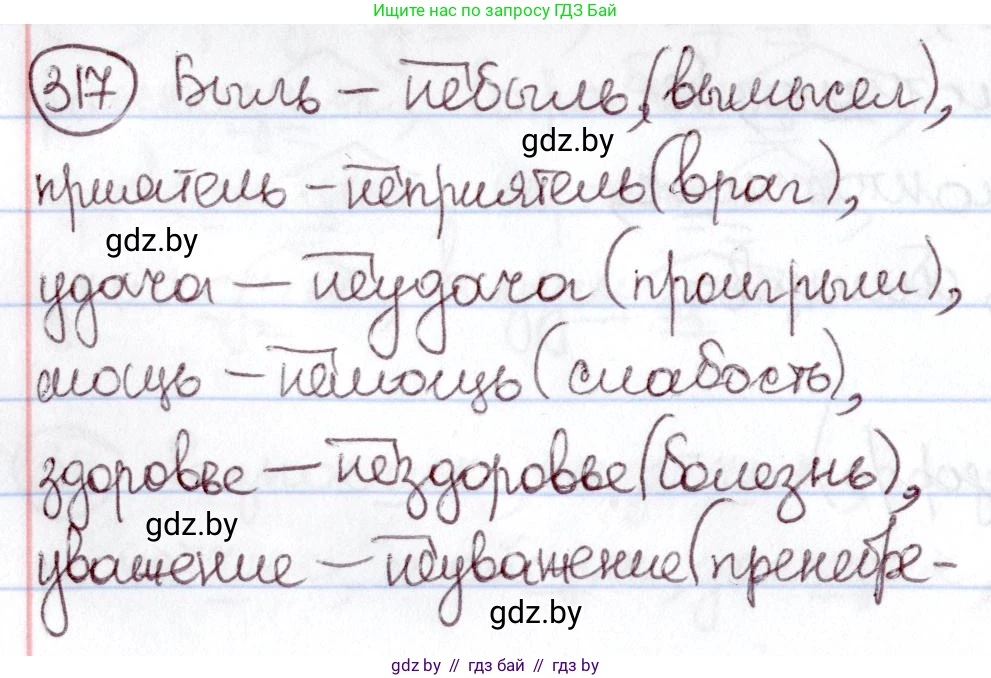 Ищите нас по запросу ГДЗ Бай
317 Быль – небыль (вымысел),
gdz.by
приятель – неприятель (враг),
gdz.by
удача – неудача (проигрыш),
мощь – немощь (слабость),
здоровье – нездоровье (болезнь),
gdz.by
уважение – неуважение (пренебре-
gdz.by
gdz by // гдз бай // гдз by